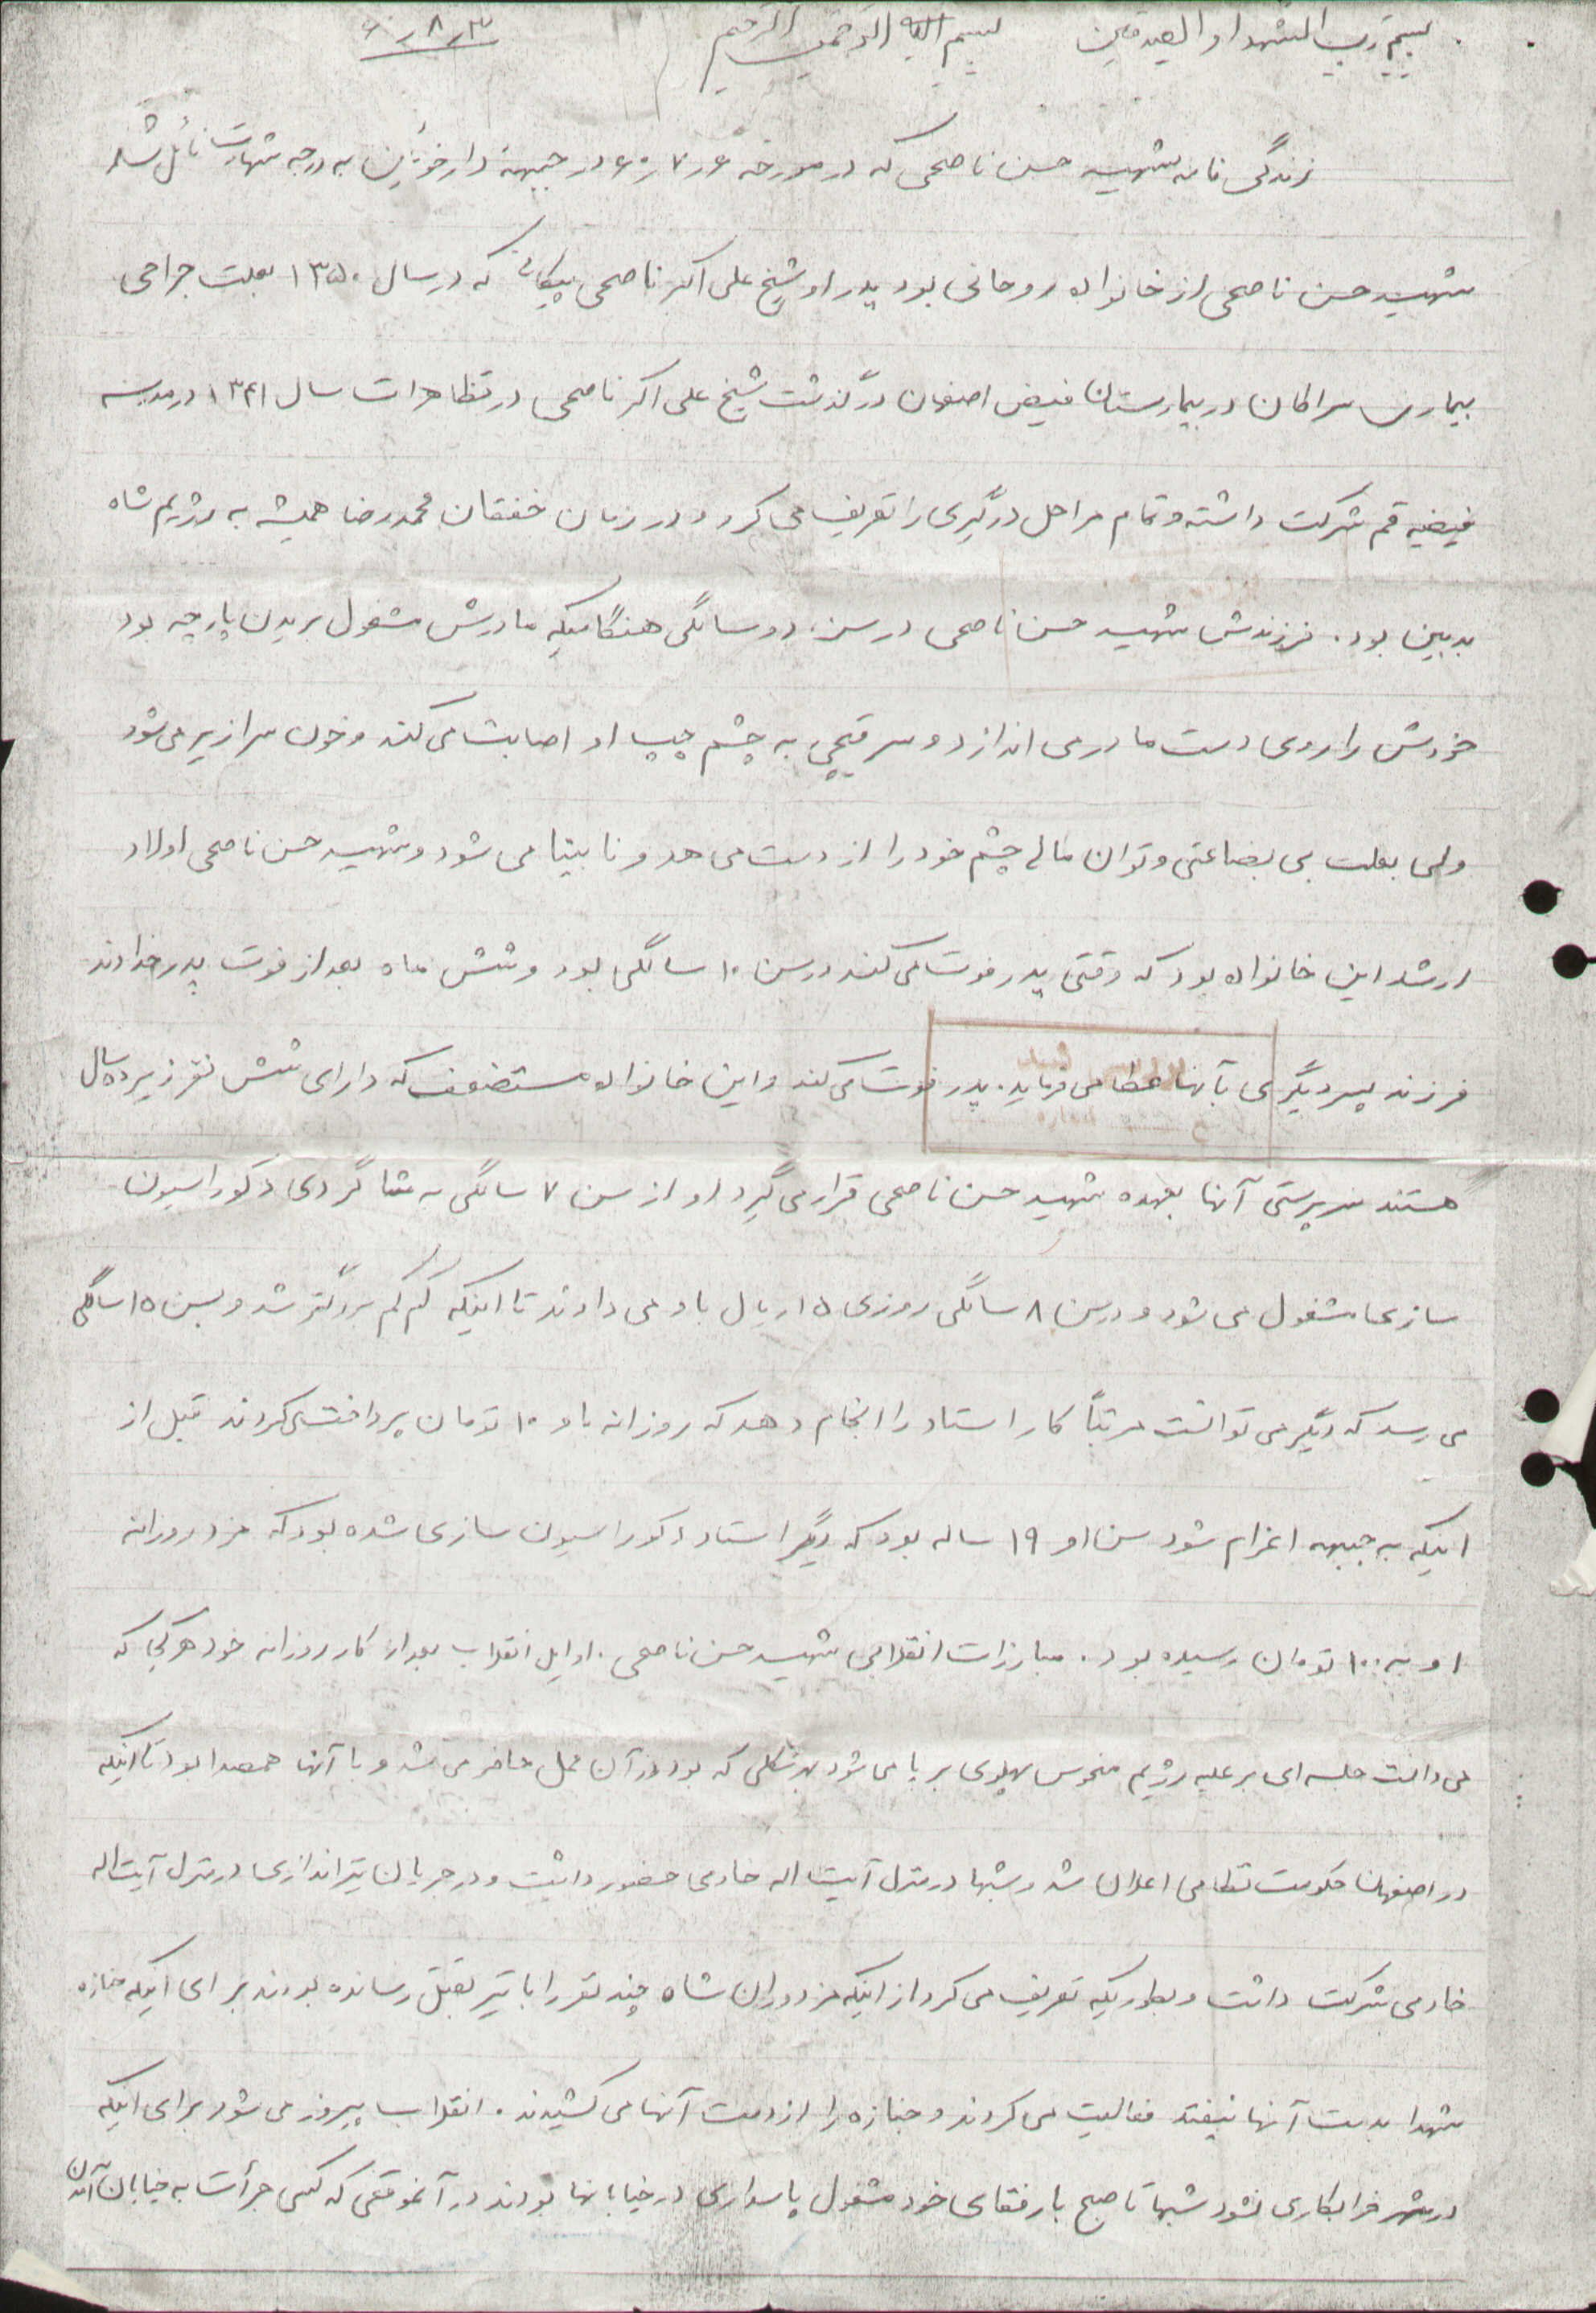 بسم رب الشهدا و الصدیقین بسم الله الرحمن الرحیم ۶۰/۸/۳
زندگی نامه شهید حسن ناصحی که در مورخه ۶۰/۷/۶ در جبهه دارخوئین به درجه شهادت نائل شد
شهید حسن ناصحی از خانواده روحانی بود پدر او شیخ علی اکبر ناصحی پیکانی که در سال ۱۳۵۰ بعلت جراحی
بیماری سرطان در بیمارستان فیض اصفهان درگذشت شیخ علی اکبر ناصحی در تظاهرات سال ۱۳۴۱ در مدرسه
فیضیه قم شرکت داشته و تمام مراحل درگیری را تعریف می کرد و در زمان خفقان محمدرضا همیشه به رژیم شاه
بدبین بود. فرزندش شهید حسن ناصحی در سن دو سالگی هنگامیکه مادرش مشغول بریدن پارچه بود
خودش را روی دست مادر می اندازد و سر قیچی به چشم چپ او اصابت می کند و خون سرازیر می شود
ولی بعلت بی بضاعتی و توان مالی چشم خود را از دست می هد و نابینا می شود و شهید حسن ناصحی اولاد
ارشد این خانواده بود که وقتی پدر فوت می کند در سن ۱۰ سالگی بود و شش ماه بعد از فوت پدر خداوند
فرزند پسر دیگری بآنها عطا می فرماید. پدر فوت می کند و این خانواده مستضعف که دارای شش نفر زیر ده سال
هستند سرپرستی آنها بعهده شهید حسن ناصحی قرار می گیرد او از سن ۷ سالگی به شاگردی دکوراسیون
سازی مشغول می شود و در سن ۸ سالگی روزی ۱۵ ریال باو می دادند تا اینکه کم کم بزرگتر شد و بسن ۱۵ سالگی
می رسد که دیگر می توانست مرتباً کار استاد را انجام دهد که روزانه باو ۱۰ تومان پرداخت می کردند قبل از
اینکه به جبهه اعزام شود سن او ۱۹ ساله بود که دیگر استاد دکوراسیون سازی شده بود که مزد روزانه
او به ۱۰۰ تومان رسیده بود. مبارزات انقلابی شهید حسن ناصحی. اوایل انقلاب بعد از کار روزانه خود هر کجا که
می دانست جلسه ای بر علیه رژیم منحوس پهلوی برپا می شود بهر شکلی که بود در آن محل حاضر می شد و با آنها همصدا بود تا اینکه
در اصفهان حکومت نظامی اعلان شد و شبها در منزل آیت اله خادمی حضور داشت و در جریان تیراندازی در منزل آیت اله
خادمی شرکت داشت و بطوریکه تعریف می کرد از اینکه مزدوران شاه چند نفر را با تیر بقتل رسانده بودند برای اینکه جنازه
شهدا بدست آنها نیفتد فعالیت می کردند و جنازه را از دست آنها می کشیدند. انقلاب پیروز می شود برای اینکه
در شهر خرابکاری نشود شبها تا صبح با رفقای خود مشغول پاسداری در خیابانها بودند در آنموقعی که کسی جرأت به خیابان آمدن